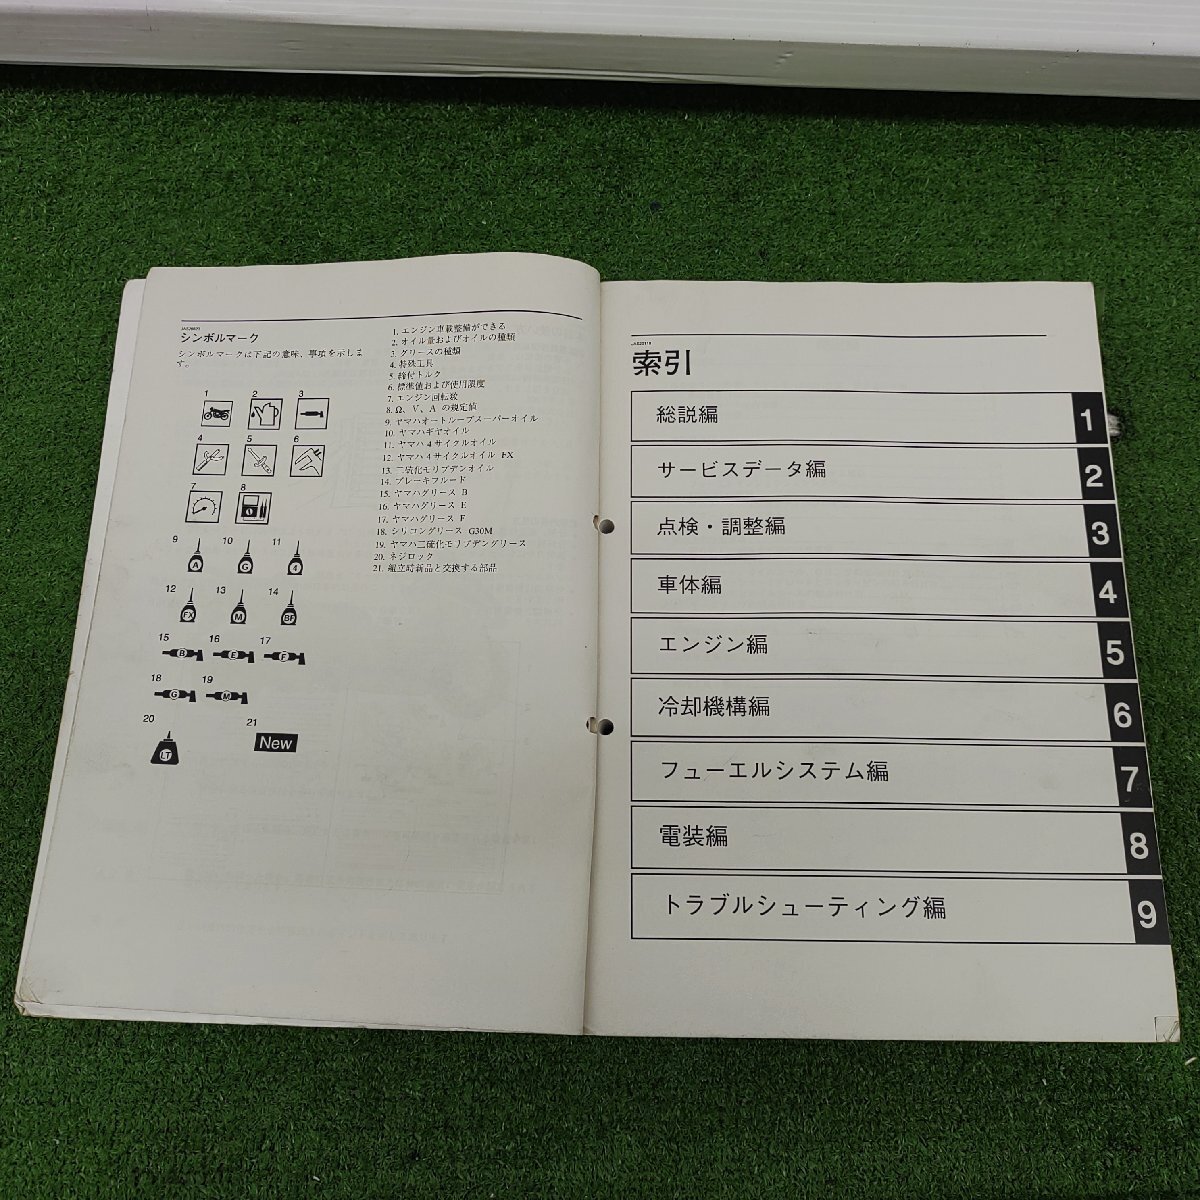 シンボルマーク
シンボルマークは下記の意味、事項を示しま
す。
1
2
3
4
5
6
7
8
9
10
11
A
G
4
12
13
14
FX
M
BF
15
16
17
B
E
F
18
19
G
M
20
21
LT
New
1. エンジン車載整備ができる
2. オイル量およびオイルの種類
3. グリースの種類
4. 特殊工具
5. 締付トルク
6. 標準値および使用限度
7. エンジン回転数
8. Ω、V、A の規定値
9. ヤマハオートルーブスーパーオイル
10. ヤマハギヤオイル
11. ヤマハ4サイクルオイル
12. ヤマハ4サイクルオイル FX
13. 二硫化モリブデンオイル
14. ブレーキフルード
15. ヤマハグリース B
16. ヤマハグリース E
17. ヤマハグリース F
18. シリコングリース G30M
19. ヤマハ二硫化モリブデングリース
20. ネジロック
21. 組立時新品と交換する部品
索引
総説編 1
サービスデータ編 2
点検・調整編 3
車体編 4
エンジン編 5
冷却機構編 6
フューエルシステム編 7
電装編 8
トラブルシューティング編 9